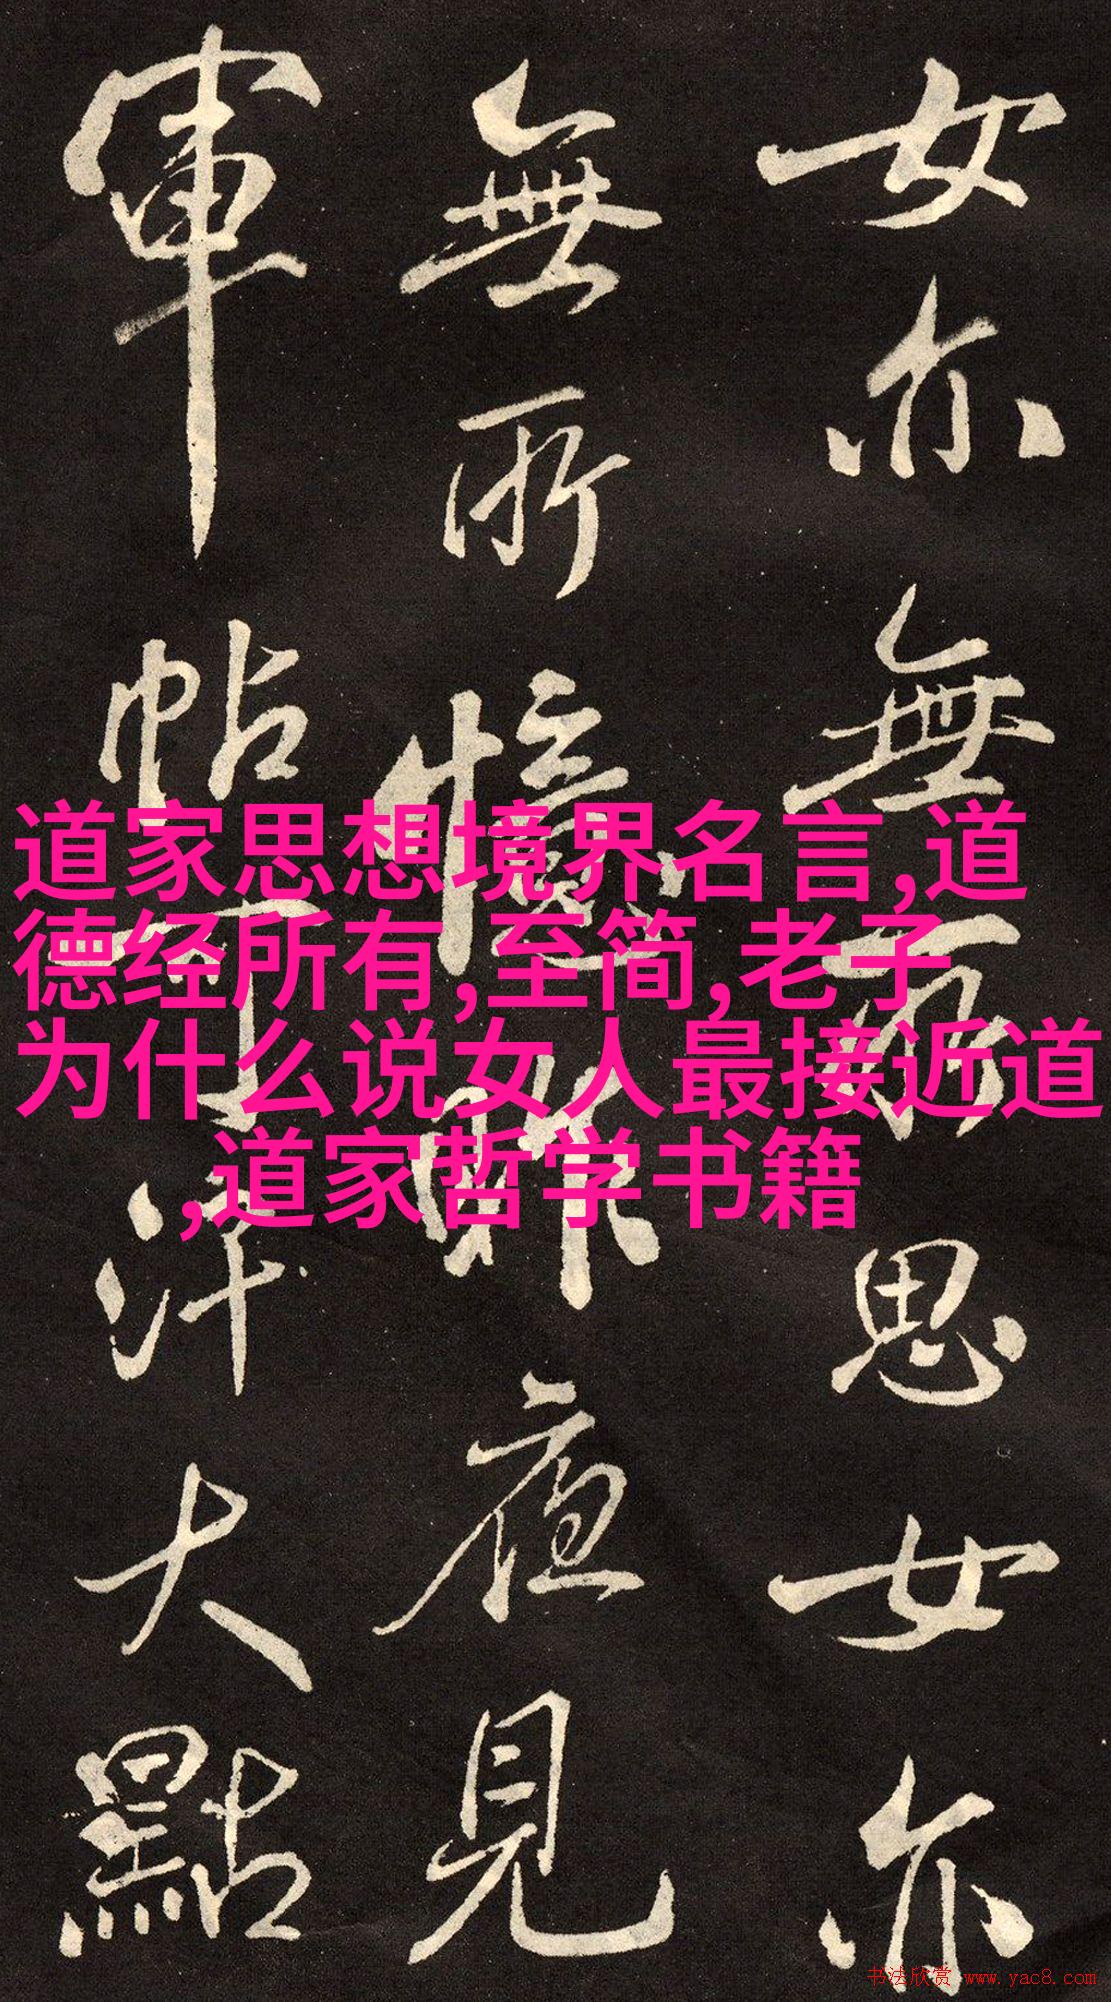 女亦無所思女亦
無所憶昨夜見
軍帖下津大點
道家思想境界名言,道
德经所有,至简,老子
为什么说女人最接近道
,道家哲学书籍
书法欣赏 www.yac8.com